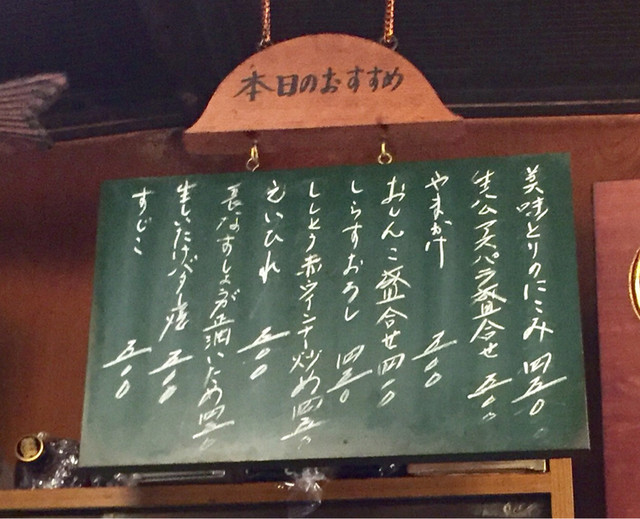 本日のおすすめ
美味とりのにこみ 四五〇
生ハムアスパラ盛合せ 五〇〇
やまかけ 五〇〇
おしんこ盛合せ 四〇〇
しらすおろし 四五〇
ししとう赤ウインナー炒め 四五〇
えいひれ 五〇〇
長なすしょうが正油いため 四五〇
生しいたけバター焼 五〇〇
すじこ 五〇〇